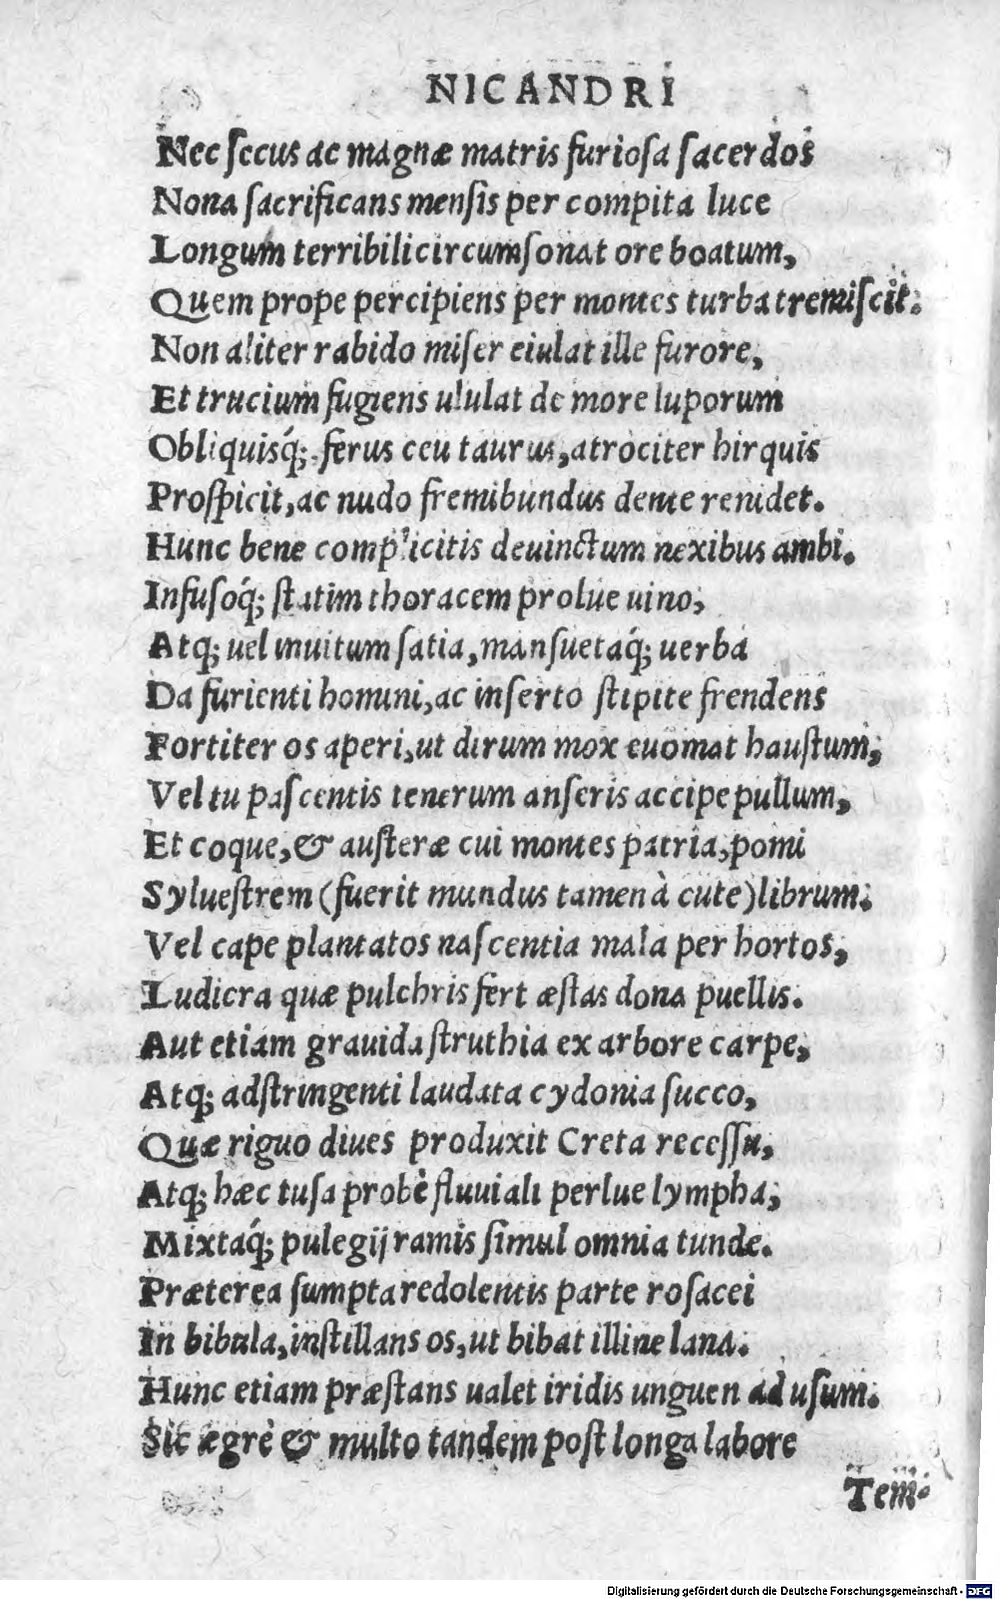 NICANDRI
Nec secus ac magnæ matris furiosa sacerdos
Nona sacrificans mensis per compita luce
Longum terribili circumsonat ore boatum,
Quem prope percipiens per montes turba tremiscit.
Non aliter rabido miser eiulat ille furore,
Et trucium fugiens ululat de more luporum
Obliquisq́; ferus ceu taurus, atrociter hirquis
Prospicit, ac nudo fremibundus dente renidet.
Hunc bene complicitis deuinctum nexibus ambi.
Infusoq́; statim thoracem prolue uino,
Atq; uel inuitum satia, mansuetaq́; uerba
Da furienti homini, ac inserto stipite frendens
Fortiter os aperi, ut dirum mox euomat haustum,
Vel tu pascentis tenerum anseris accipe pullum,
Et coque, & austeræ cui montes patria, pomi
Syluestrem (fuerit mundus tamen à cute) librum.
Vel cape plantatos nascentia mala per hortos,
Ludicra quæ pulchris fert æstas dona puellis.
Aut etiam grauida struthia ex arbore carpe,
Atq; adstringenti laudata cydonia succo,
Quæ riguo diues produxit Creta recessu,
Atq; hæc tusa probè fluuiali perlue lympha,
Mixtaq́; pulegij ramis simul omnia tunde.
Præterea sumpta redolentis parte rosacei
In bibula, instillans os, ut bibat illine lana.
Hunc etiam præstans ualet iridis unguen ad usum.
Sic ægrè & multo tandem post longa labore
Tem-
Digitalisierung gefördert durch die Deutsche Forschungsgemeinschaft - DFG